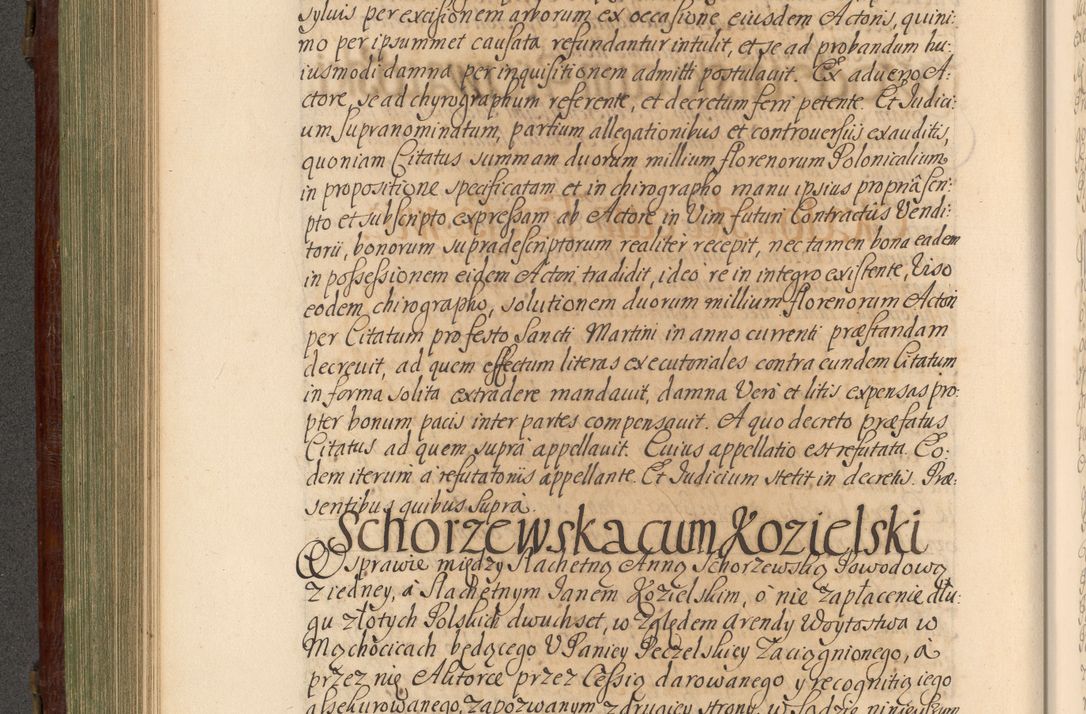 sylvis per excisionem arborum ex occasione eiusdem Actoris, quini:
mo per ipsummet causata refundantur intulit, et se ad probandum hu:
iusmodi damna per inquisitionem admitti postulauit. Ex aduerso A:
ctore, se ad chyrographum referente, et decretum ferri petente. Et Iudici:
um supranominatum, partium allegationibus et controuersiis exauditis,
quoniam Citatus summam duorum millium florenorum Polonicalium
in propositione specificatam et in chirographo manu ipsius propriâ scri:
pto et subscripto expressam ab Actore in Vim futuri Contractûs Vendi:
torii, bonorum supradescriptorum realiter recepit, nec tamen bona eadem
in possessionem eidem Actori tradidit, ideò re in integro existente, Viso
eodem chirographo, solutionem duorum millium florenorum Actori
per Citatum pro festo Sancti Martini in anno currenti præstandam
decreuit, ad quem effectum literas executoriales contra eundem Citatum
in forma solita extradere mandauit, damna Verò et litis expensas pro:
pter bonum pacis inter partes compensauit. A quo decreto præfatus
Citatus ad quem suprà appellauit. Cuius appellatio est refutata. Eo:
dem iterum à refutatoriis appellante. Et Iudicium stetit in decretis. Præ:
sentibus quibus suprà.
Schorzewska cum Kozielski
W sprawie między Slachetną Anną Schorzewską Powodową
z iedney, á Slachetnym Janem Kozielskim, o nie zapłacenie dłu:
gu złotych Polskich dwuchset, w zględem arendy Woytostwa w
Mąchocicach będącego V Paniey Peczelskiey Zaciągnionego, á
przez nię Aktorce przez Cessią darowanego y recognitią iego
assekurowanego, zapozwanym z drugiey strony, w sądzie ninieyszym